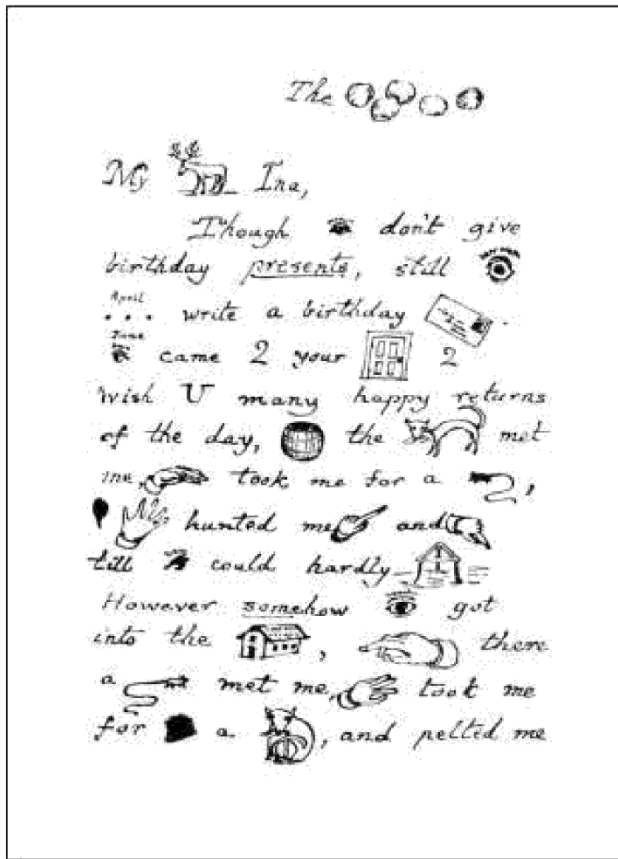 The
My Ina,
Though don't give
birthday presents, still
April
... write a birthday .
June
came 2 your 2
wish U many happy returns
of the day, the met
me, took me for a ,
hunted me and
till could hardly
However somehow got
into the , there
a met me, took me
for a , and pelted me